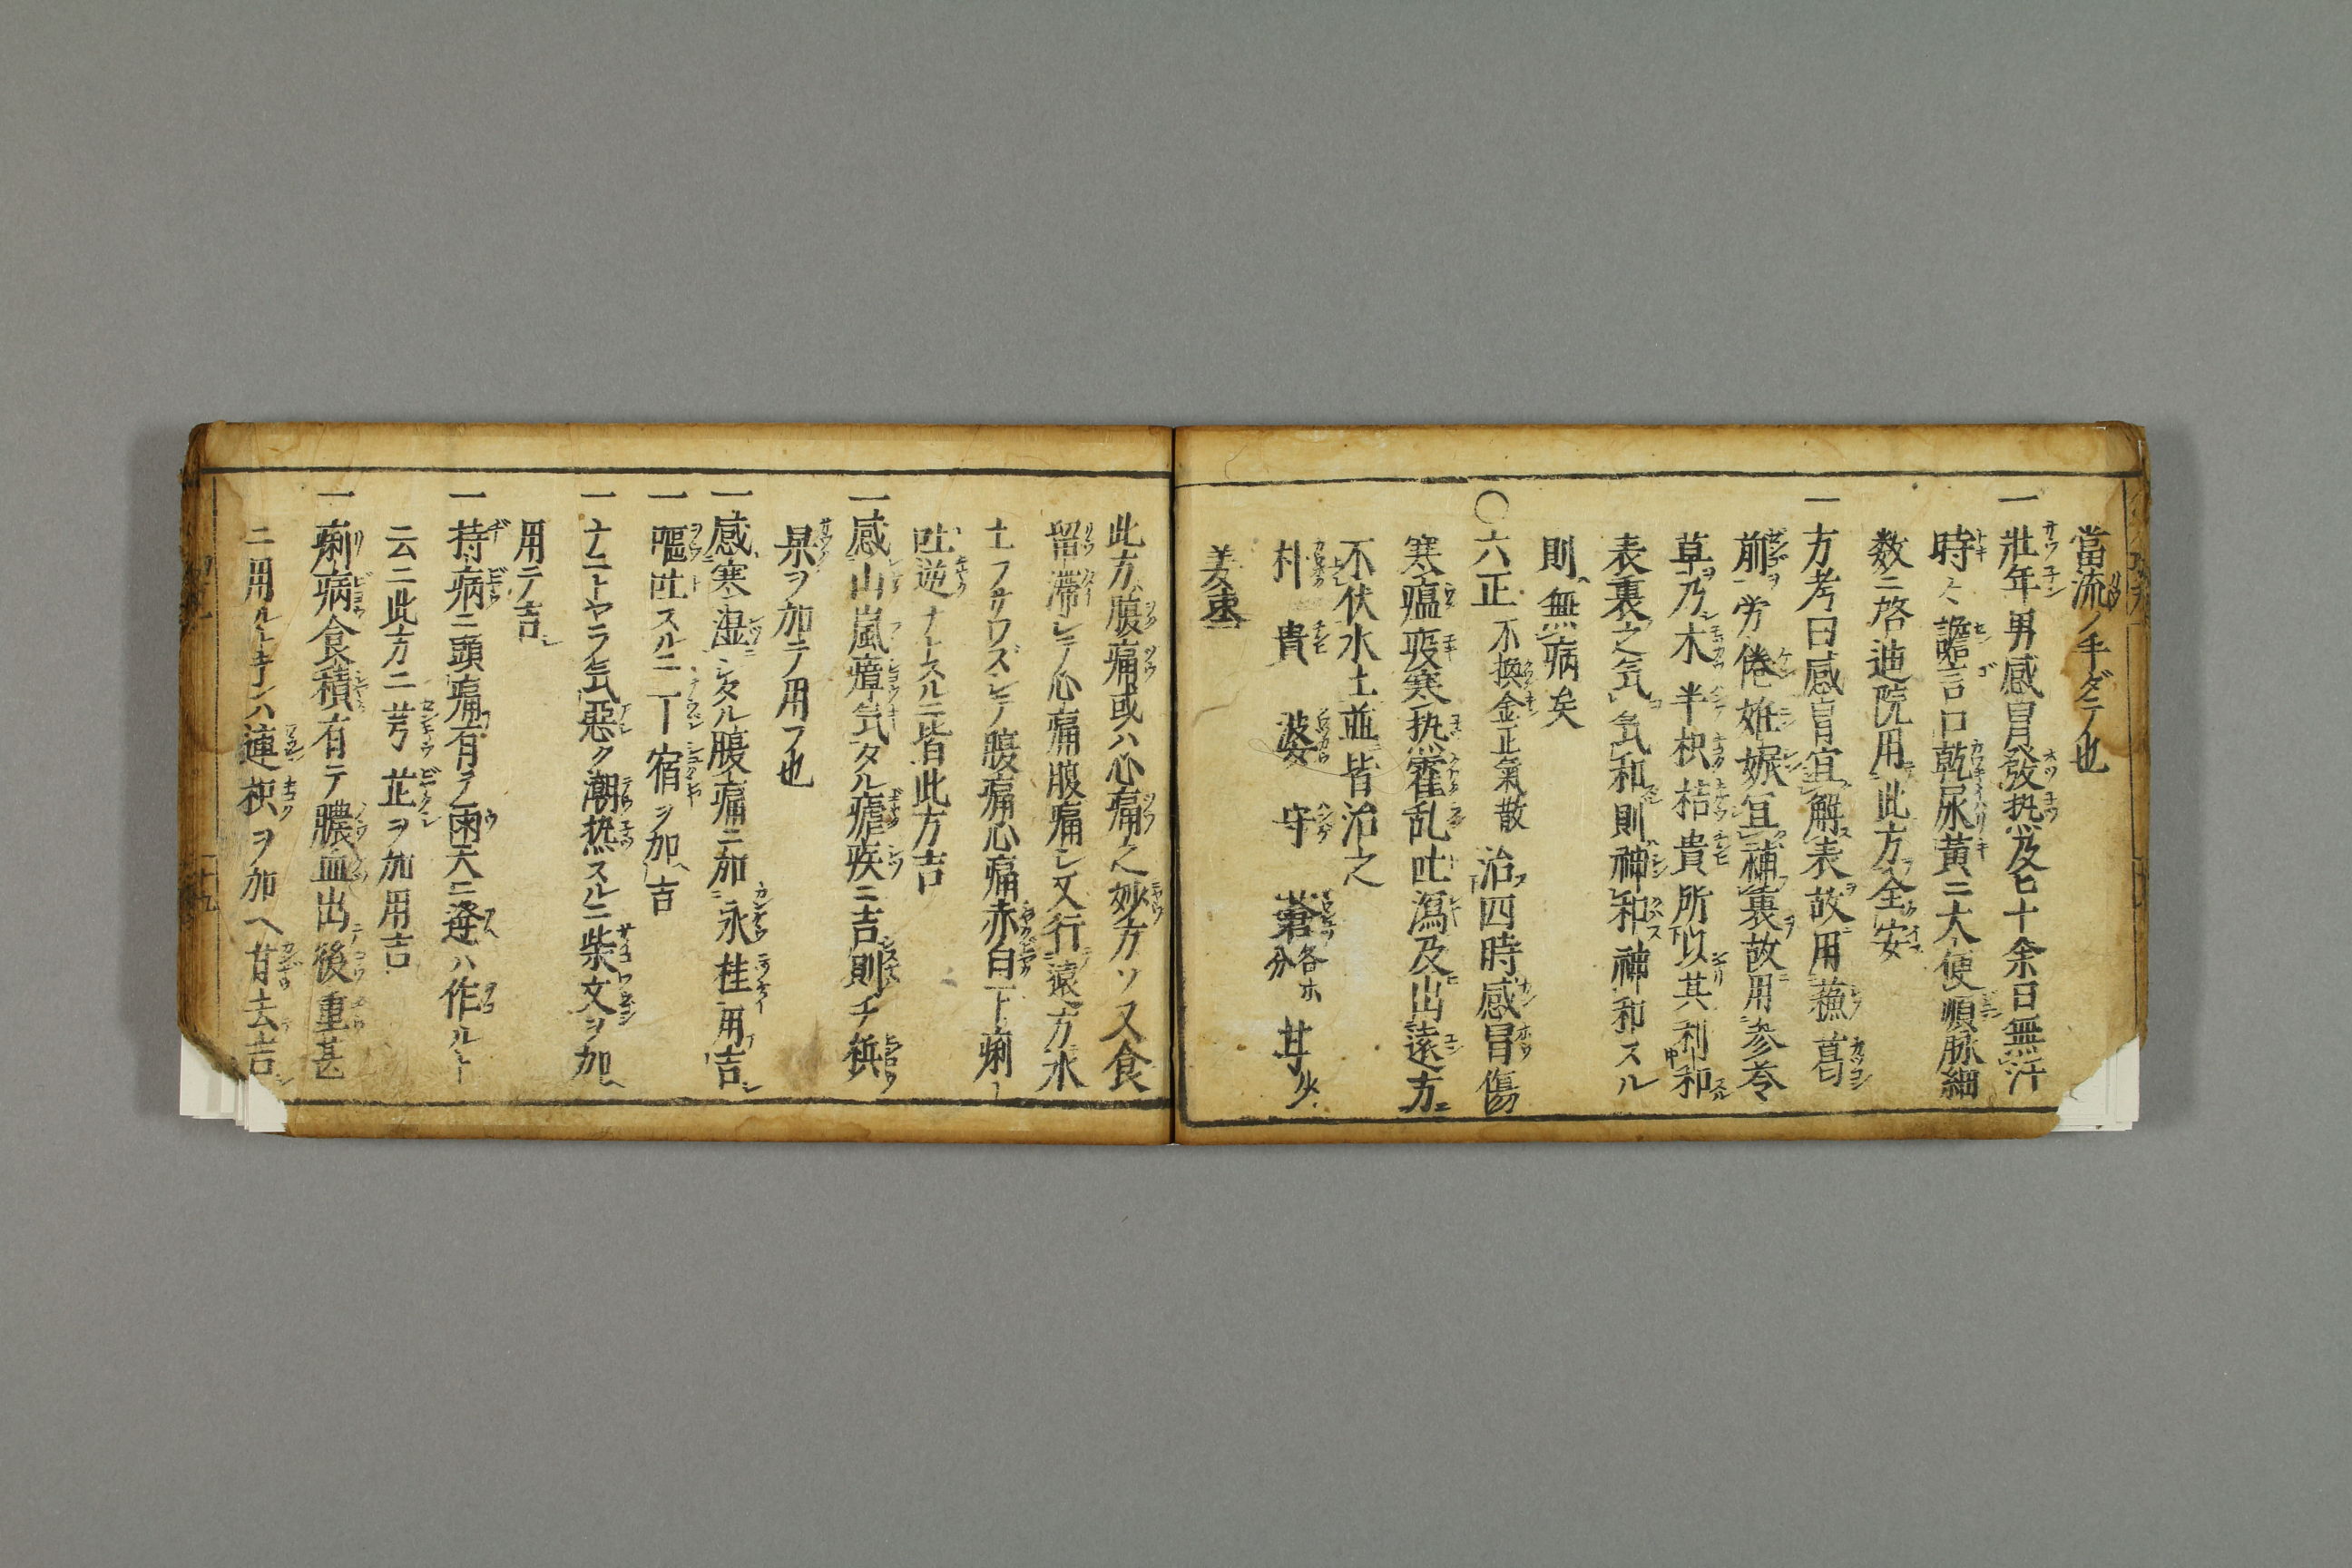 當流ノ手ダテ也
一壯年ノ男感冒發热及七十余日無汗
時々譫言口乾尿黄ニ大便順脉細
数ニ啓迪院用此方全安
一方考曰感冒宜解表故用蘓葛
前労倦姙娠宜補裏故用参苓
草乃木半枳桔貴所以其利和
表裏之気気和則神和神和スル
則無病矣
○六正 不換金正氣散 治四時感冒傷
寒瘟疫寒热霍乱吐瀉及出遠方ニ
不伏水土並皆治之
朴 貴 婆 守 蒼各分 甘少
姜棗
此方腹痛或ハ心痛之妙方ソ又食
留滞シテ心痛腹痛シ又行遠方水
土フサワズシテ腹痛心痛赤白下痢
吐逆ナトスルニ皆此方吉
一感山嵐瘴気タル瘧疾ニ吉則チ梹
杲ヲ加テ用フ也
一感寒湿シタル腹痛ニ加永桂用吉
一嘔吐スルニ丁宿ヲ加吉
一ナニトヤラ気惡ク潮热スルニ柴文ヲ加
用テ吉
一持病ニ頭痛有テ雨天ニ逢ハ作ルト
云ニ此方ニ芎芷ヲ加用吉
一痢病食積有テ膿血出後重甚
ニ用ルトキンハ連枳ヲ加ヘ甘去吉